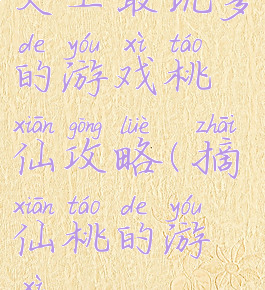 de yóu xì táo
的游戏桃
xiān gōng lüè zhāi
仙攻略(摘
xiān táo de yóu
仙桃的游
xì